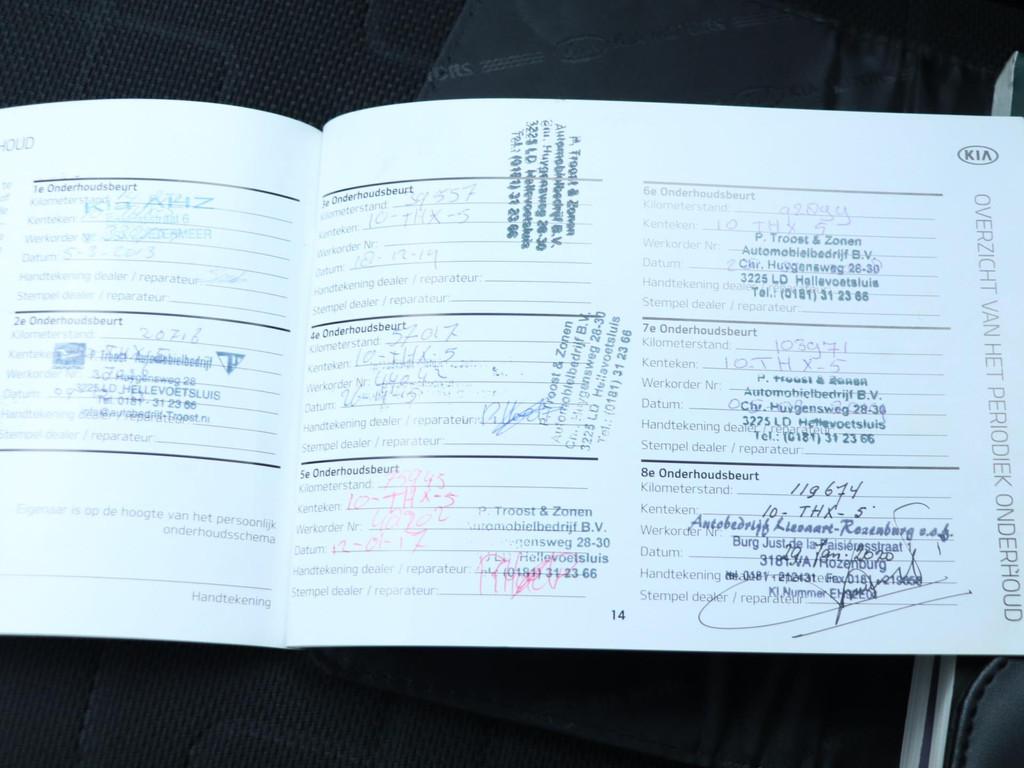 HOUD
1e Onderhoudsbeurt
Kilometerstand:
Kenteken:
Werkorder Nr:
Datum: 5-3-2013
Handtekening dealer / reparateur:
Stempel dealer / reparateur:
2e Onderhoudsbeurt
Kilometerstand: 20718
Kenteken:
P. Troost Automobielbedrijf
Werkorder
Chr. Huygensweg 28
3225 LD HELLEVOETSLUIS
Datum:
Tel. 0181 - 31 23 66
Handtekening dealer / reparateur:
Stempel dealer / reparateur:
Eigenaar is op de hoogte van het persoonlijk
onderhoudsschema
Handtekening
3e Onderhoudsbeurt
Kilometerstand: 39557
Kenteken: 10-THX-5
Werkorder Nr:
Datum: 18-12-14
Handtekening dealer / reparateur:
Stempel dealer / reparateur:
P. Troost & Zonen
Automobielbedrijf B.V.
Chr. Huygensweg 28-30
3225 LD Hellevoetsluis
Tel.: (0181) 31 23 66
4e Onderhoudsbeurt
Kilometerstand: 57017
Kenteken: 10-THX-5
Werkorder Nr:
Datum:
Handtekening dealer / reparateur:
Stempel dealer / reparateur:
P. Troost & Zonen
Automobielbedrijf B.V.
Chr. Huygensweg 28-30
3225 LD Hellevoetsluis
Tel.: (0181) 31 23 66
5e Onderhoudsbeurt
Kilometerstand: 75945
Kenteken: 10-THX-5
Werkorder Nr:
Datum: 12-01-17
Handtekening dealer / reparateur:
Stempel dealer / reparateur:
P. Troost & Zonen
Automobielbedrijf B.V.
Huygensweg 28-30
Hellevoetsluis
(0181) 31 23 66
14
KIA
6e Onderhoudsbeurt
Kilometerstand:
Kenteken: 10 THX 5
Werkorder Nr:
Datum:
Handtekening dealer
Stempel dealer / reparateur:
P. Troost & Zonen
Automobielbedrijf B.V.
Chr. Huygensweg 28-30
3225 LD Hellevoetsluis
Tel.: (0181) 31 23 66
7e Onderhoudsbeurt
Kilometerstand: 103971
Kenteken: 10-THX-5
Werkorder Nr:
Datum:
Handtekening dealer / reparateur:
Stempel dealer / reparateur:
P. Troost & Zonen
Automobielbedrijf B.V.
Chr. Huygensweg 28-30
3225 LD Hellevoetsluis
Tel.: (0181) 31 23 66
8e Onderhoudsbeurt
Kilometerstand: 119674
Kenteken: 10-THX-5
Werkorder
Autobedrijf Lievaart-Rozenburg v.o.f.
Burg Just de la Paisièresstraat 1
Datum: Jan. 2020
3181 VA Rozenburg
Handtekening
tel. 0181 - 212431 Fax 0181 - 219858
Stempel dealer / reparateur:
OVERZICHT VAN HET PERIODIEK ONDERHOUD